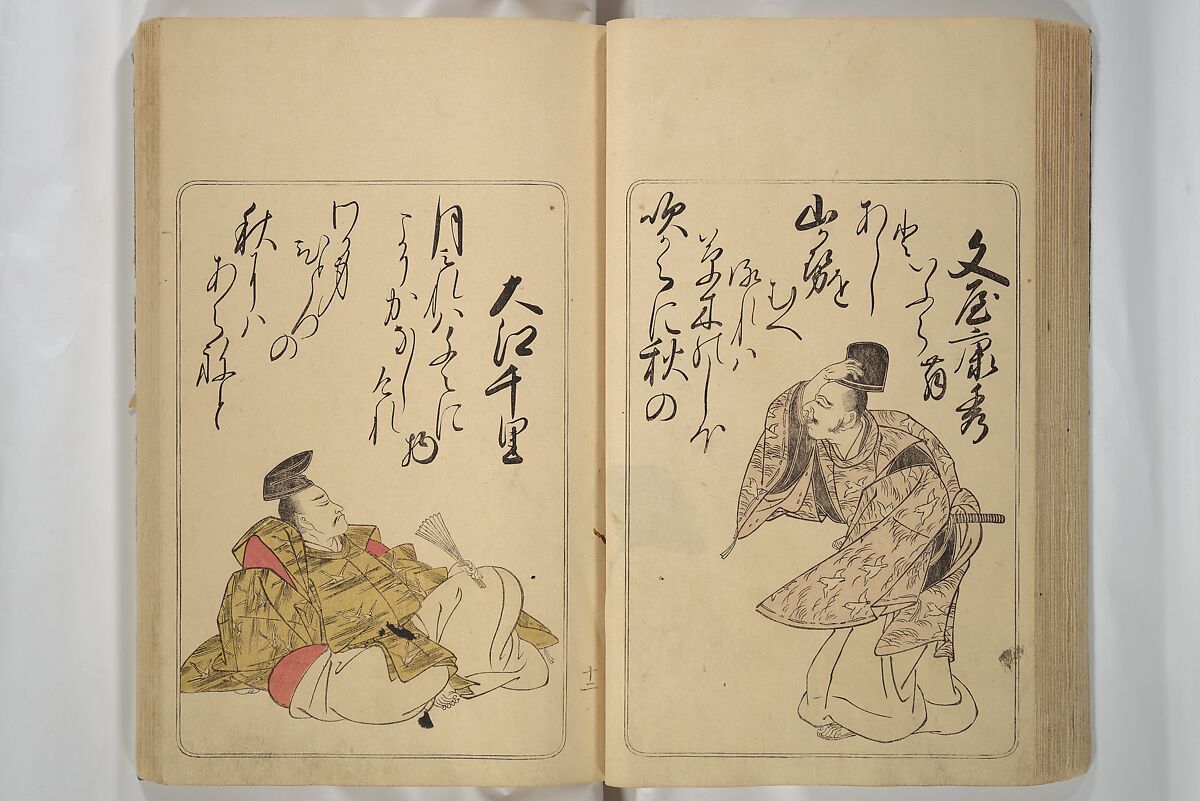 文屋康秀
吹からに秋の
草木のしほ
るれハ
むへ
山かせを
あらし
といふらむ
大江千里
月みれハちゝに
物
こそかなし
けれ
わか身
ひとつの
秋にハ
あらねと
十二